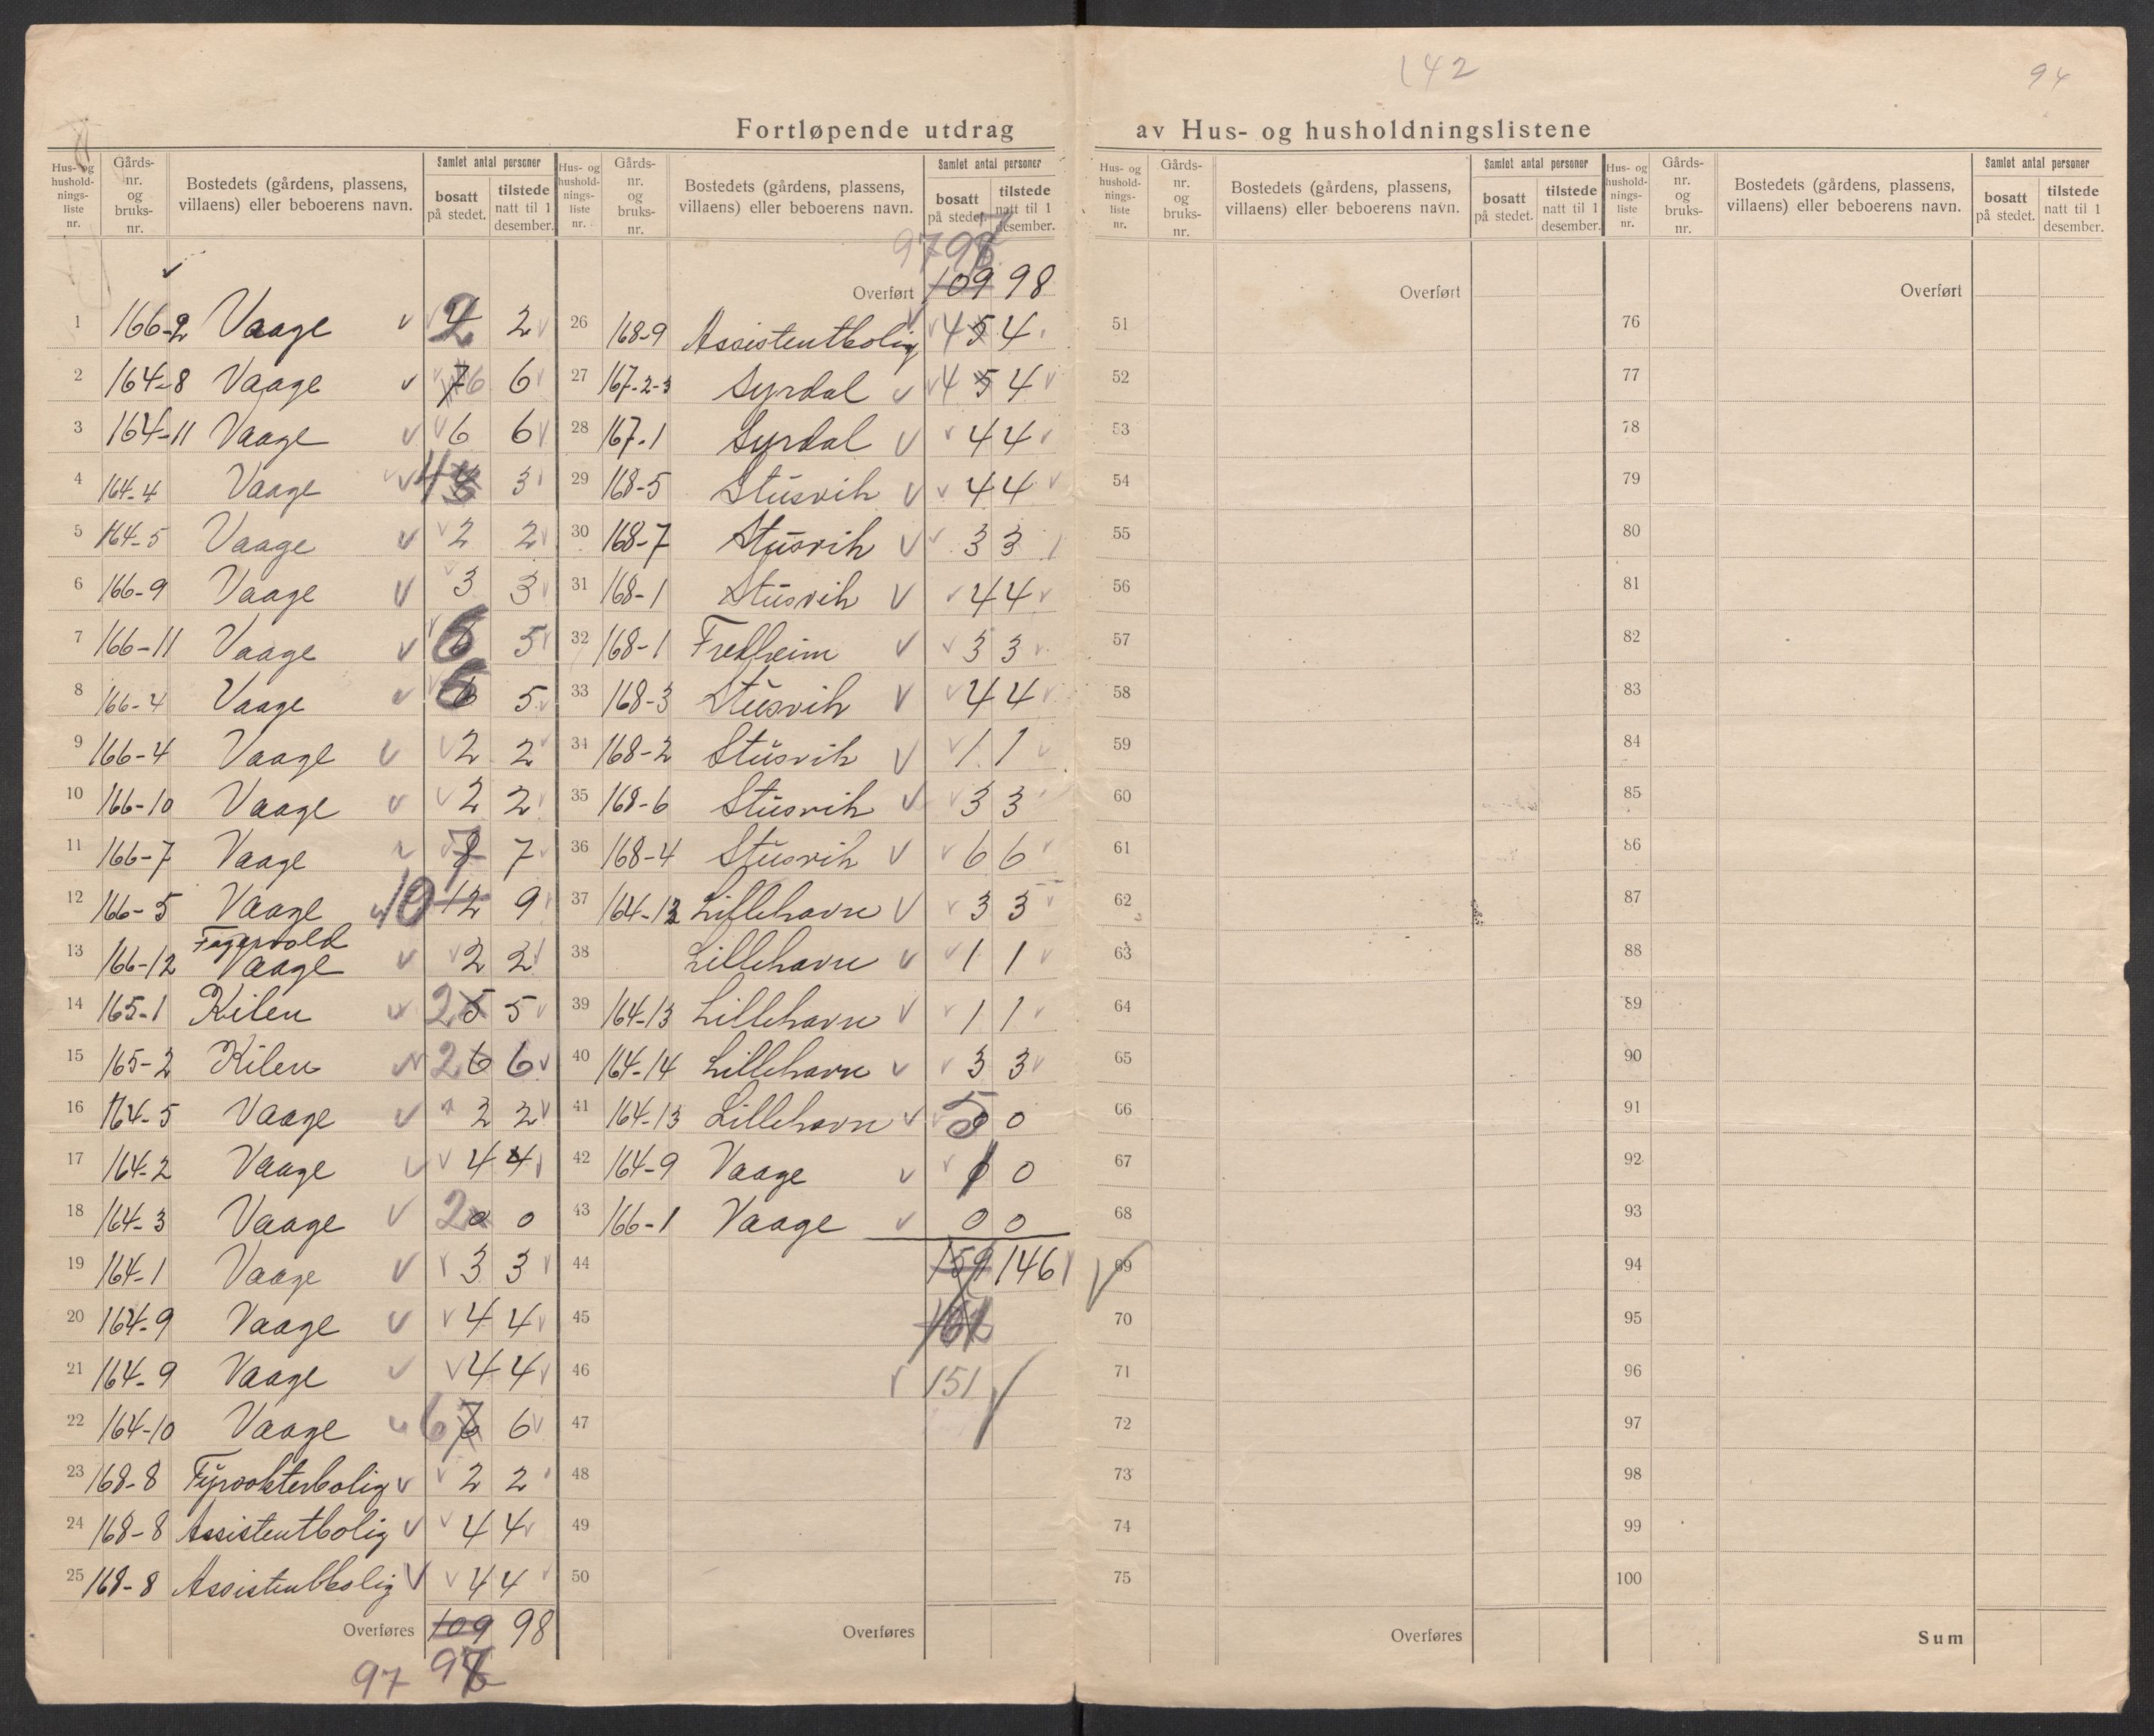 142
94
Fortløpende utdrag av Hus- og husholdningslistene
Hus- og hushold- nings- liste nr. Gårds- nr. og bruks- nr. Bostedets (gårdens, plassens, villaens) eller beboerens navn. Samlet antal personer bosatt på stedet. tilstede natt til 1 desember.
1 166-2 Vaage 4 2 2
2 164-8 Vaage 7 6 6
3 164-11 Vaage 6 6
4 164-4 Vaage 4 3
5 164-5 Vaage 2 2
6 166-9 Vaage 3 3
7 166-11 Vaage 6 5
8 166-4 Vaage 6 5
9 166-4 Vaage 2 2
10 166-10 Vaage 2 2
11 166-7 Vaage 7 7
12 166-5 Vaage 10 12 9
13 166-12 Fagervold Vaage 2 2
14 165-1 Kilen 2 5 5
15 165-2 Kilen 2 6 6
16 164-5 Vaage 2 2
17 164-2 Vaage 4 4
18 164-3 Vaage 2 0 0
19 164-1 Vaage 3 3
20 164-9 Vaage 4 4
21 164-9 Vaage 4 4
22 164-10 Vaage 6 7 6
23 168-8 Fyrvokterbolig 2 2
24 168-8 Assistentbolig 4 4
25 168-8 Assistentbolig 4 4
Overføres 109 98
97
Hus- og hushold- nings- liste nr. Gårds- nr. og bruks- nr. Bostedets (gårdens, plassens, villaens) eller beboerens navn. Samlet antal personer bosatt på stedet. tilstede natt til 1 desember.
97 98
Overført 109 98
26 168-9 Assistentbolig 4 5 4
27 167-2-3 Syrdal 4 5 4
28 167-1 Syrdal 4 4
29 168-5 Stusvik 4 4
30 168-7 Stusvik 3 3
31 168-1 Stusvik 4 4
32 168-1 Fredheim 3 3
33 168-3 Stusvik 4 4
34 168-2 Stusvik 1 1
35 168-6 Stusvik 3 3
36 168-4 Stusvik 6 6
37 164-13 Lillehavn 3 3
38 Lillehavn 1 1
39 164-13 Lillehavn 1 1
40 164-14 Lillehavn 3 3
41 164-13 Lillehavn 5 0 0
42 164-9 Vaage 1 0
43 166-1 Vaage 0 0
44 159 146
45
46 151
47
48
49
50
Overføres
Hus- og hushold- nings- liste nr. Gårds- nr. og bruks- nr. Bostedets (gårdens, plassens, villaens) eller beboerens navn. Samlet antal personer bosatt på stedet. tilstede natt til 1 desember.
Overført
51
52
53
54
55
56
57
58
59
60
61
62
63
64
65
66
67
68
69
70
71
72
73
74
75
Overføres
Hus- og hushold- nings- liste nr. Gårds- nr. og bruks- nr. Bostedets (gårdens, plassens, villaens) eller beboerens navn. Samlet antal personer bosatt på stedet. tilstede natt til 1 desember.
Overført
76
77
78
79
80
81
82
83
84
85
86
87
88
89
90
91
92
93
94
95
96
97
98
99
100
Sum